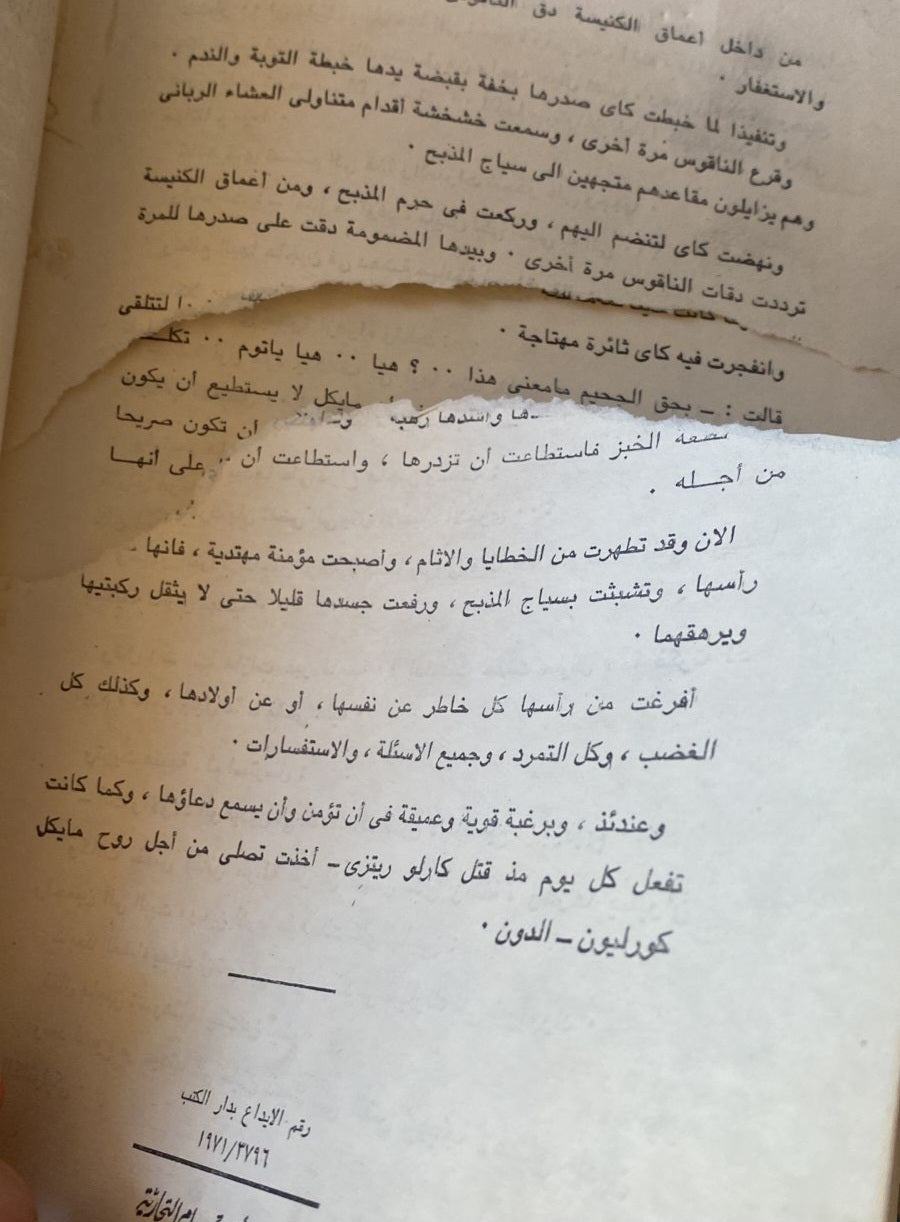 من داخل أعماق الكنيسة دق
والاستغفار .
وتنفيذا لما خبطت كاى صدرها بخفة بقبضة يدها خبطة التوبة والندم .
وقرع الناقوس مرة أخرى ، وسمعت خشخشة أقدام متناولى العشاء الربانى
وهم يزايلون مقاعدهم متجهين الى سياج المذبح .
ونهضت كاى لتنضم اليهم ، وركعت فى حرم المذبح ، ومن أعماق الكنيسة
ترددت دقات الناقوس مرة أخرى . وبيدها المضمومة دقت على صدرها للمرة
لتتلقى
وانفجرت فيه كاى ثائرة مهتاجة .
قالت : ــ بحق الجحيم مامعنى هذا ٠٠ ؟ هيا ٠٠ هيا ياتوم ٠٠
مايكل لا يستطيع أن يكون
أن تكون صريحا
الخبز فاستطاعت أن تزدرها ، واستطاعت أن
من أجــله .
على أنهــا
الان وقد تطهرت من الخطايا والاثام ، وأصبحت مؤمنة مهتدية ، فانها
رأسها ، وتشبثت بسياج المذبح ، ورفعت جسدها قليلا حتى لا يثقل ركبتيها
ويرهقهما .
أفرغت من رأسها كل خاطر عن نفسها ، أو عن أولادها ، وكذلك كل
الغضب ، وكل التمرد ، وجميع الاسئلة ، والاستفسارات .
وعندئذ ، وبرغبة قوية وعميقة فى أن تؤمن وأن يسمع دعاؤها ، وكما كانت
تفعل كل يوم مذ قتل كارلو ريتزى ــ أخذت تصلى من أجل روح مايكل
كورليون ــ الدون .
رقم الايداع بدار الكتب
١٩٧١/٣٧٩٦
التجارية